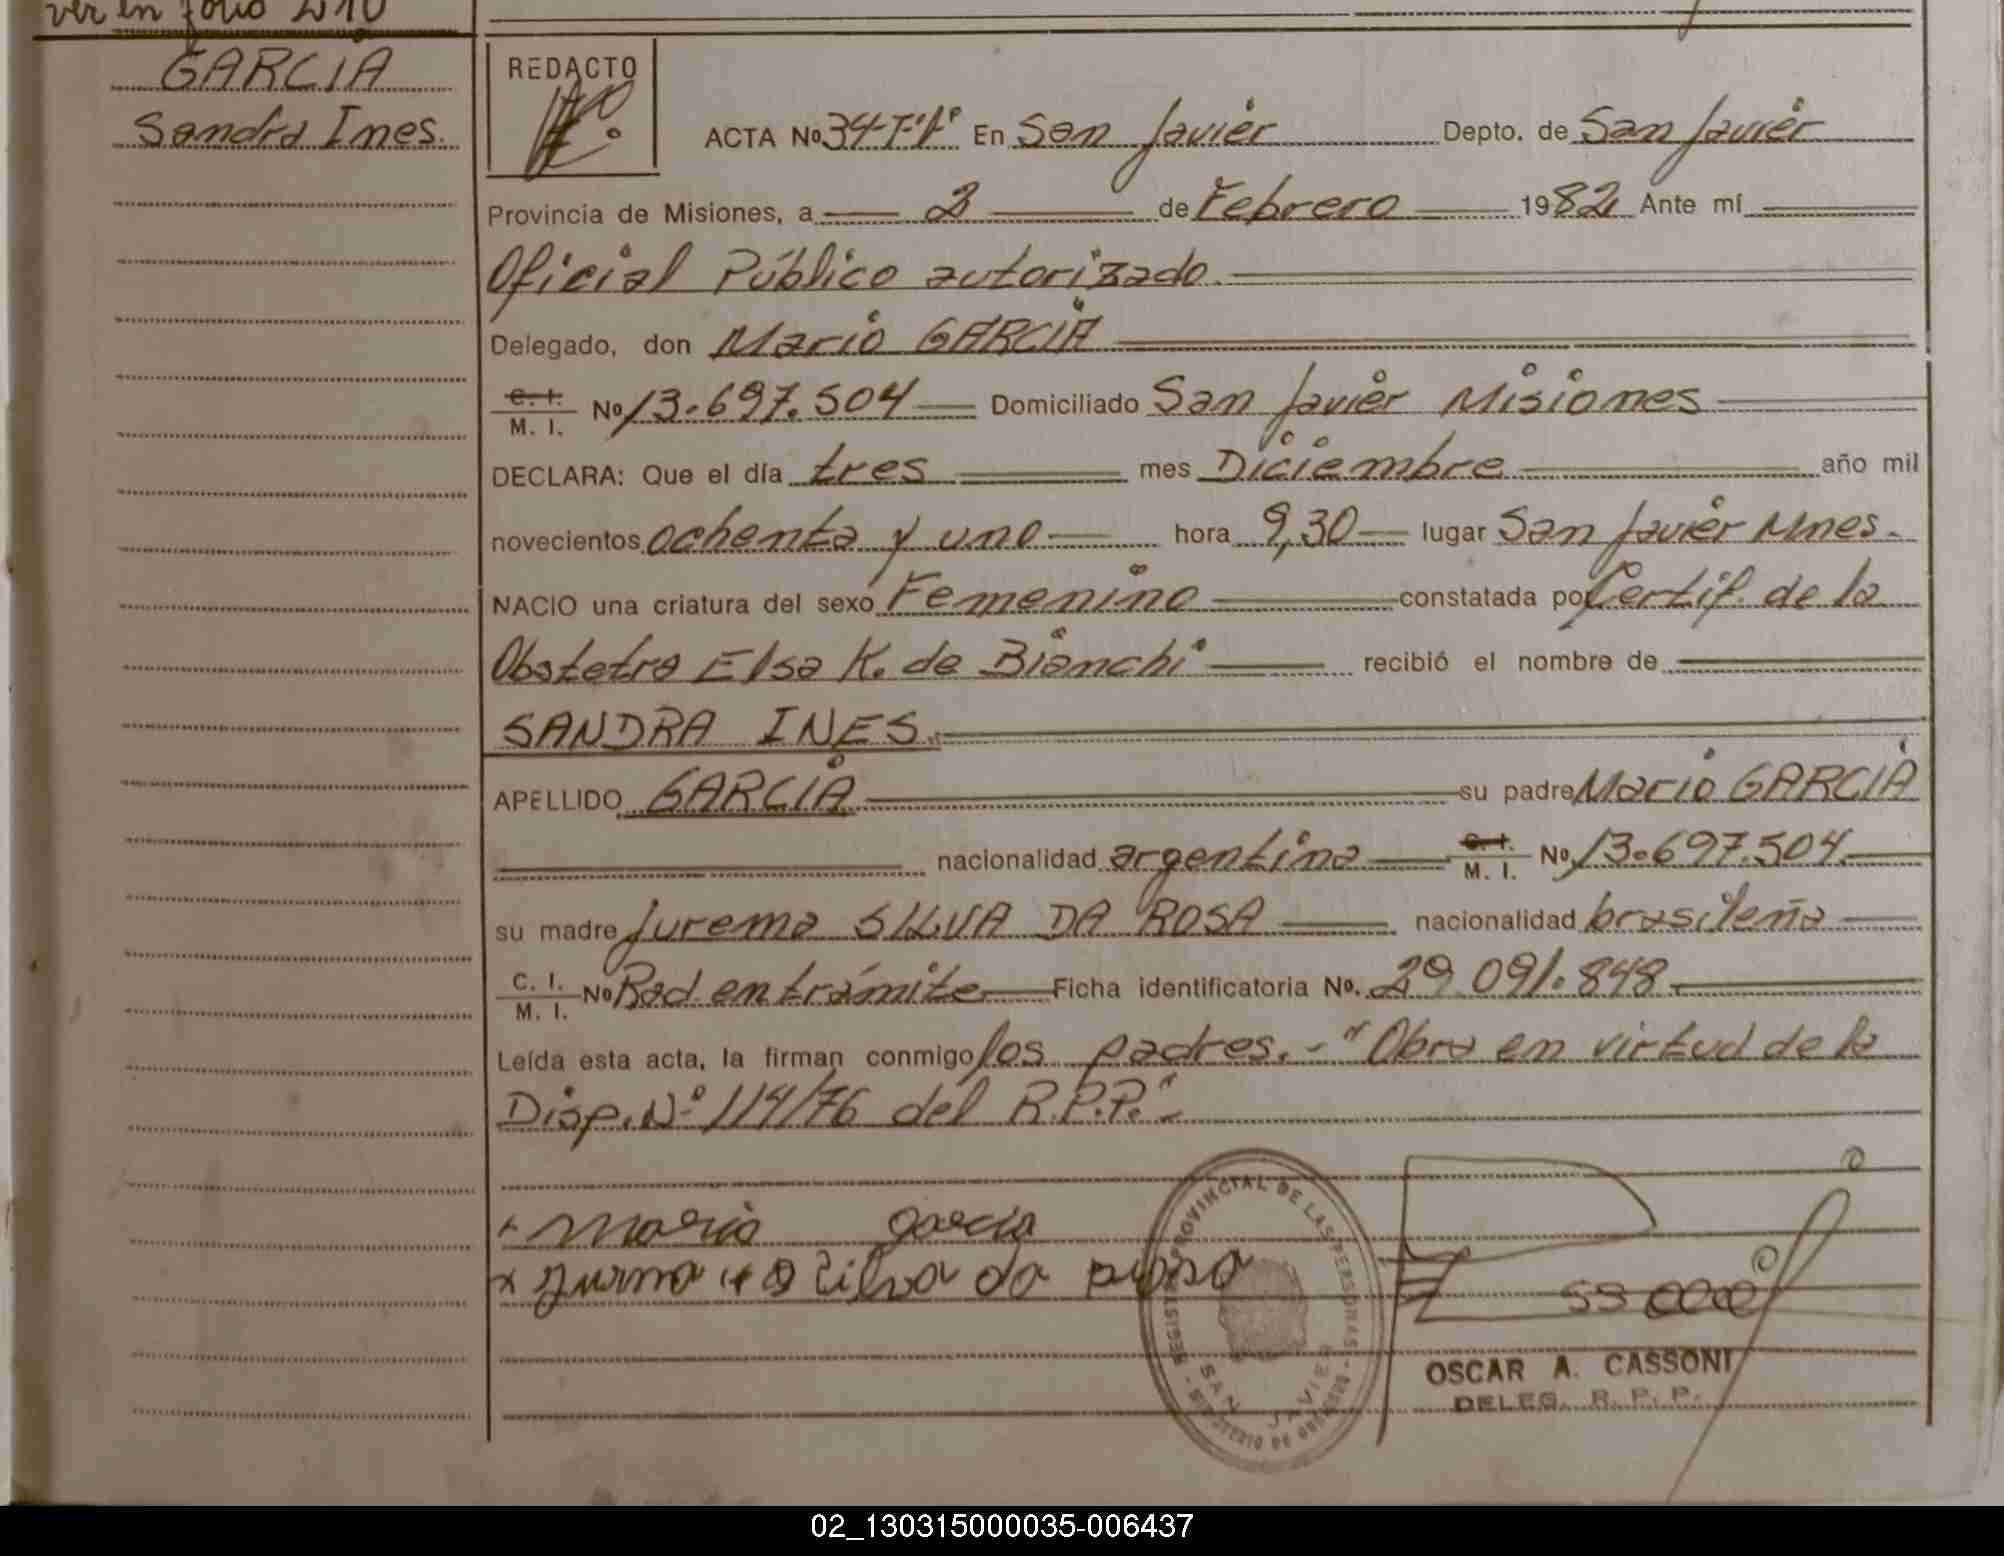 ver en folio 210
GARCIA
Sandra Ines.
REDACTO
ACTA No 34-Tº1º En San Javier Depto. de San Javier
Provincia de Misiones, a 2 de Febrero 1982 Ante mí
Oficial Público autorizado.
Delegado, don Mario GARCIA
C. I.
M. I. No 13.697.504 Domiciliado San Javier Misiones
DECLARA: Que el día tres mes Diciembre año mil
novecientos ochenta y uno hora 9,30 lugar San Javier Mnes.
NACIO una criatura del sexo Femenino constatada por Certif. de la
Obstetra Elsa K. de Bianchi recibió el nombre de
SANDRA INES.
APELLIDO GARCIA su padre Mario GARCIA
nacionalidad argentina C. I.
M. I. No 13.697.504
su madre Jurema SILVA DA ROSA nacionalidad brasileña
C. I.
M. I. No Rad. en trámite Ficha identificatoria No. 29.091.848
Leída esta acta, la firman conmigo los padres.- "Obra en virtud de la
Disp. Nº 114/76 del R.P.P."
x mario garcia
x Silva da
REGISTRO PROVINCIAL DE LAS PERSONAS
SAN JAVIER
MINISTERIO DE GOBIERNO
OSCAR A. CASSONI
DELEG. R. P. P.
02_130315000035-006437